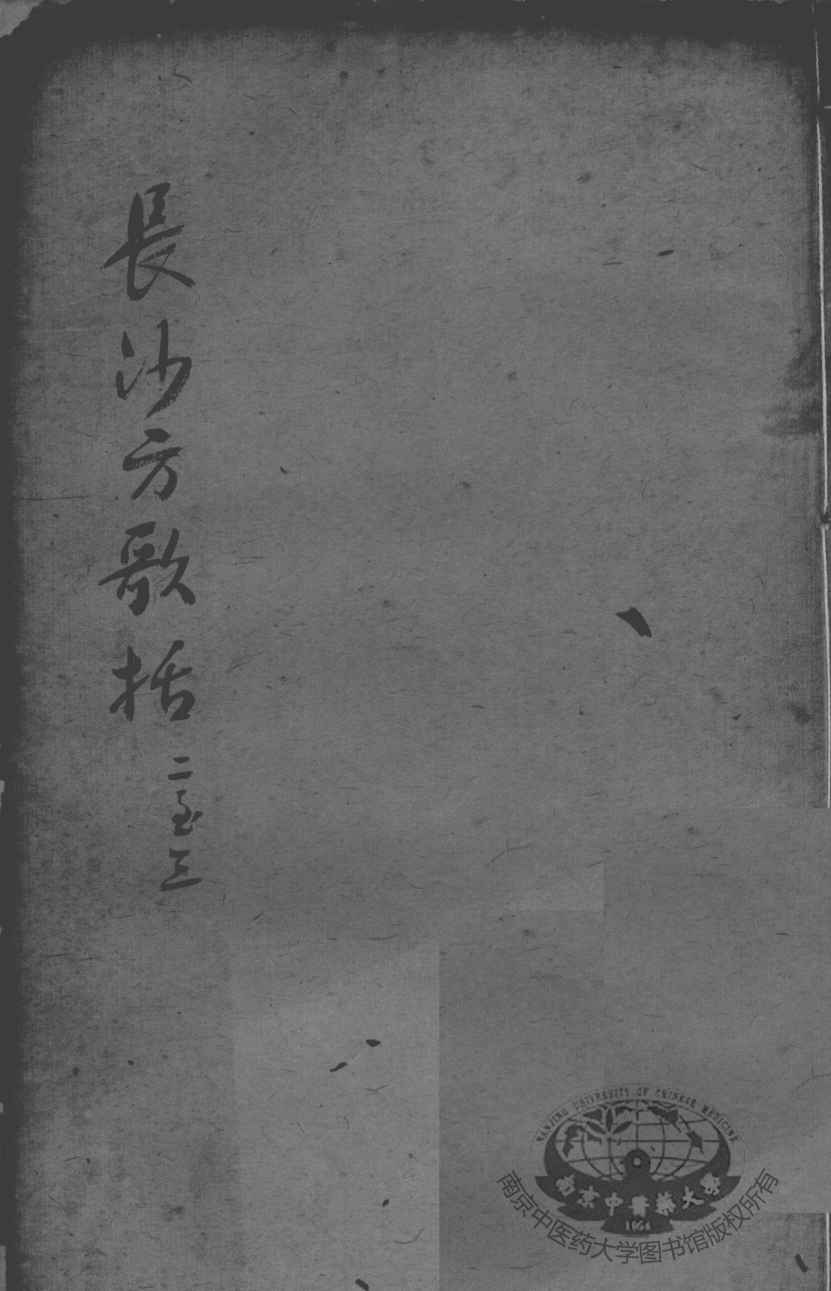 長沙方歌括 二至三
NANJING UNIVERSITY OF CHINESE MEDICINE
南京中醫藥大學
1954
南京中医药大学图书馆版权所有